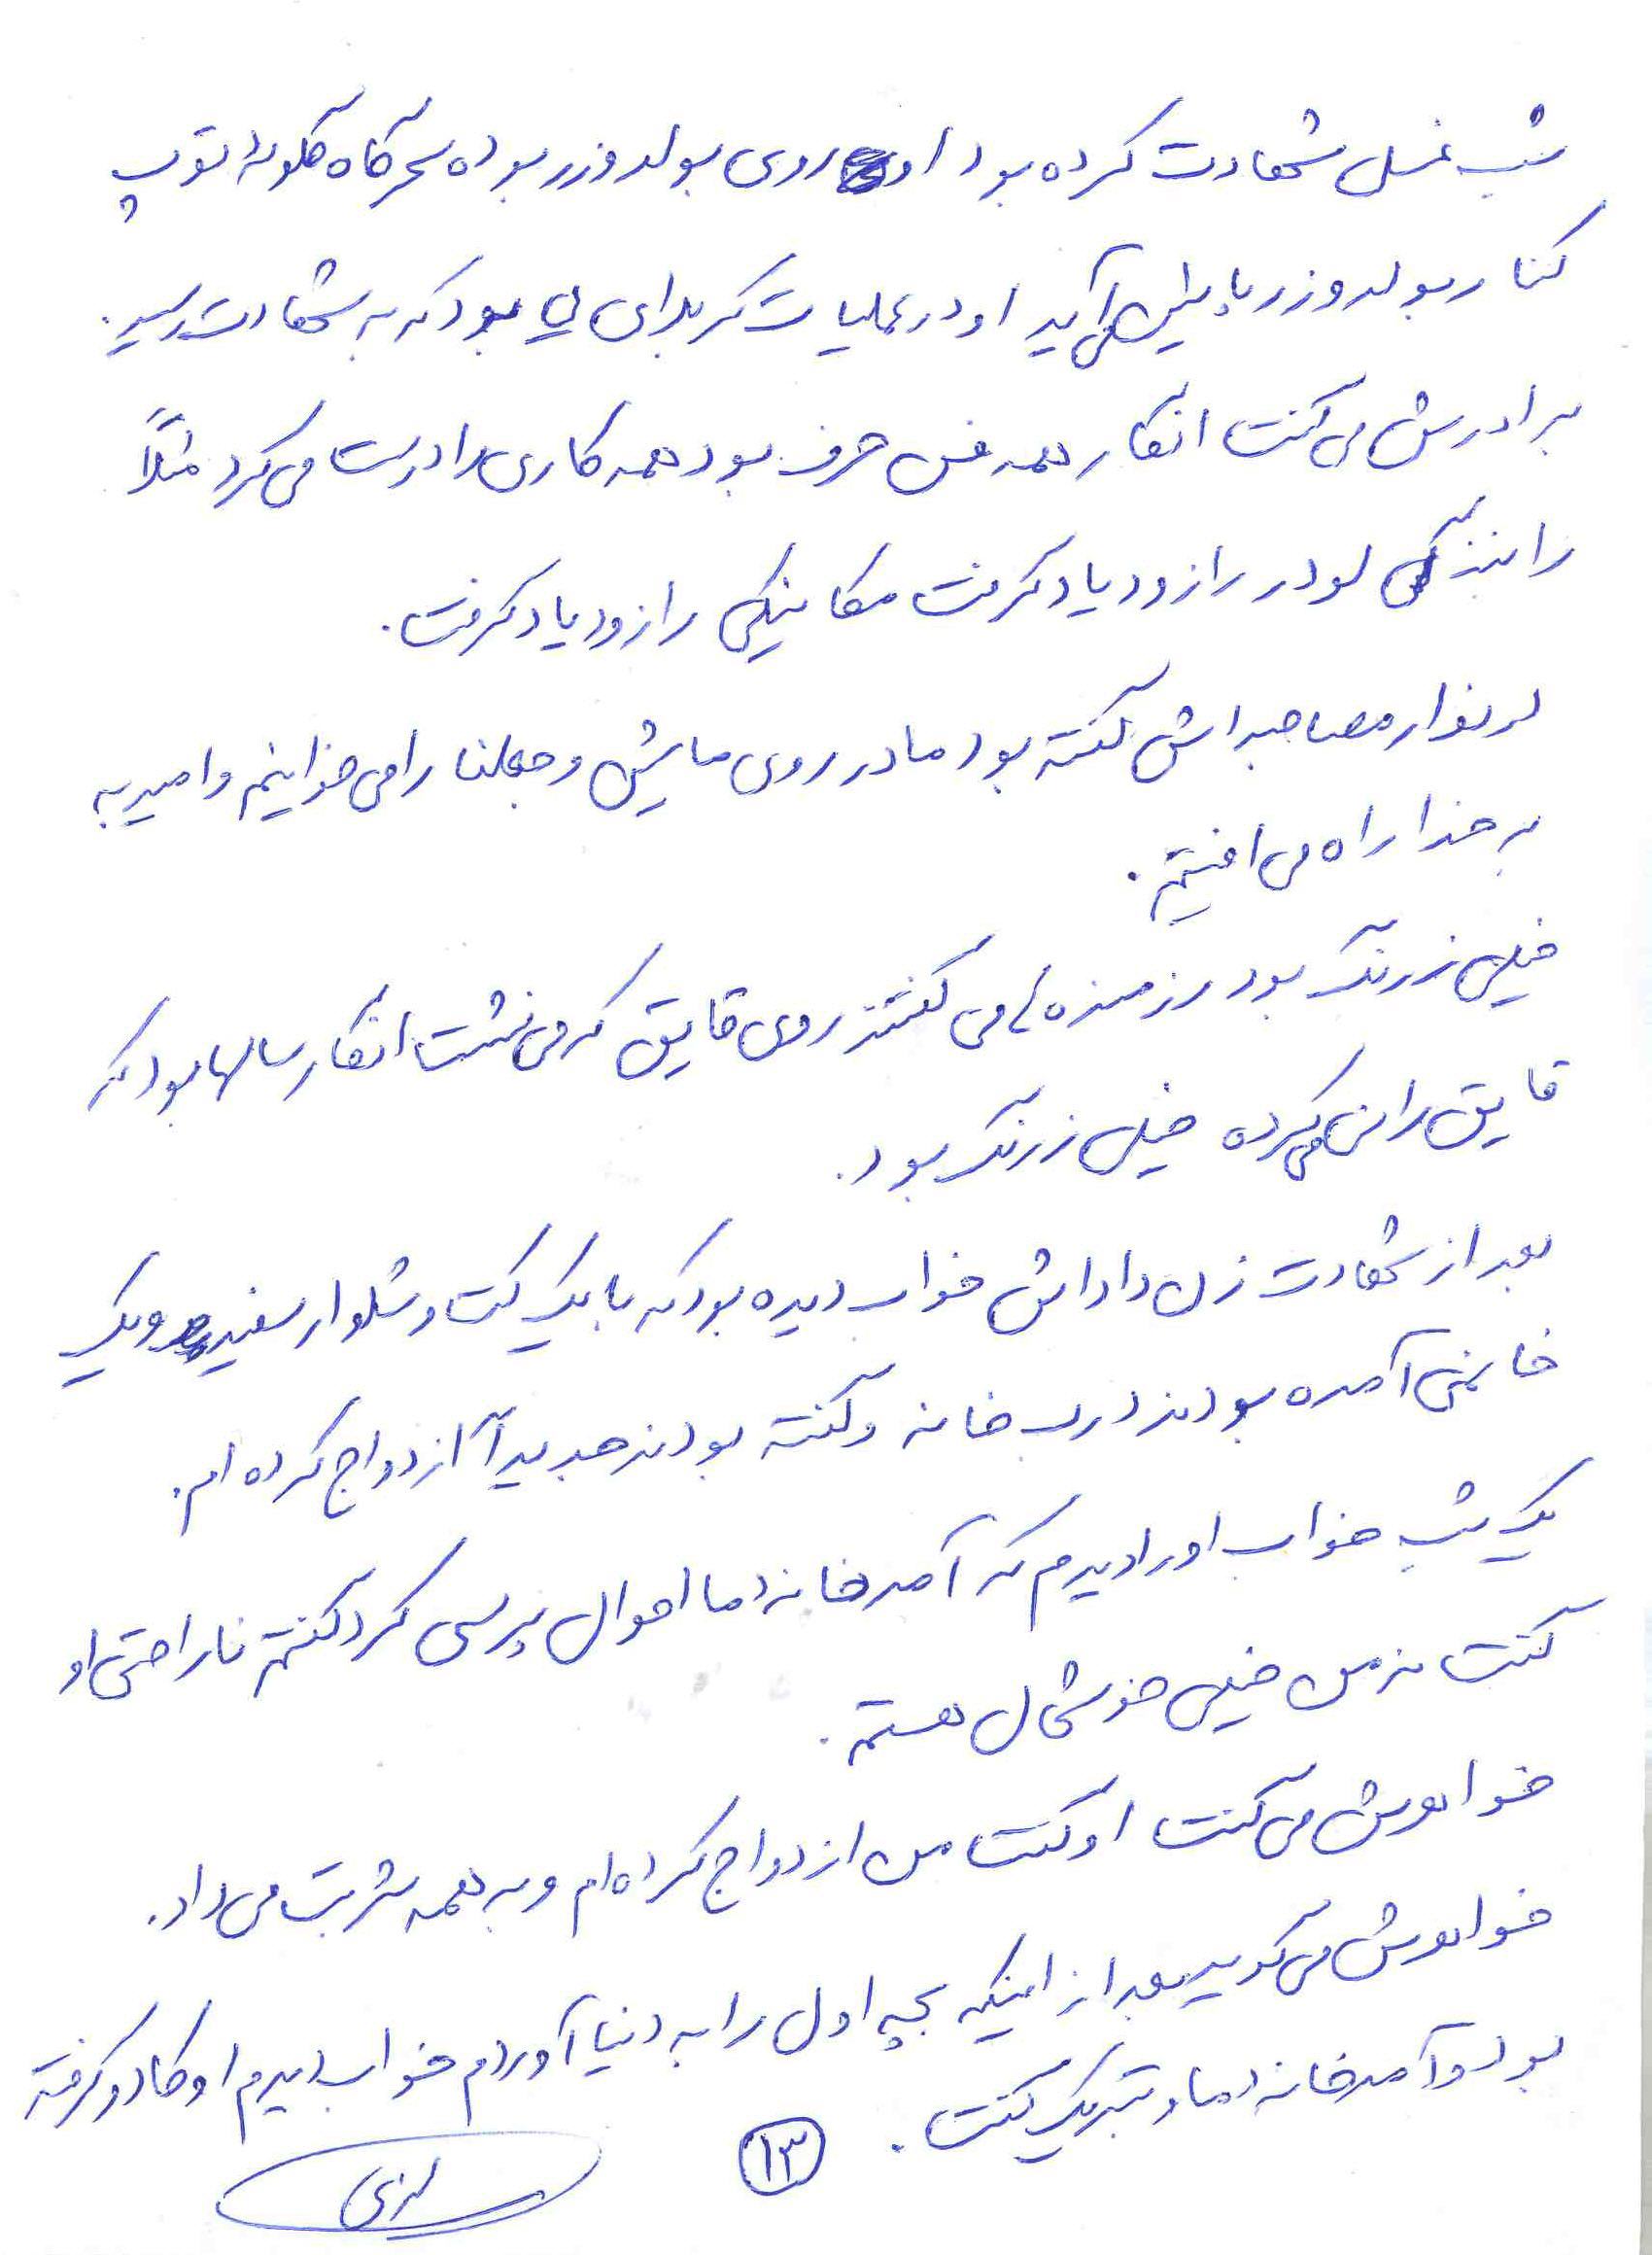 شب غسل شهادت کرده بود او روی بولدوزر بوده سحرگاه گلوله توپ
کنار بولدوزر پایین می‌آید او در عملیات کربلای ۵ بود که به شهادت رسید.
برادرش می گفت انگار همه فن حرف بود همه کاری را درست می کرد مثلاً
رانندگی لودر را زود یاد گرفت مکانیکی را زود یاد گرفت.
در نوار مصاحبه اش گفته بود ما در روی مایش وجعلنا را می خوانیم و امید به
به خدا راه می افتیم.
خیلی زرنگ بود رزمنده ها می گفتند روی قایق که می نشست انگار سالها بود که
قایق رانی می‌کرده خیلی زرنگ بود.
بعد از شهادت زن داداش خواب دیده بود که با یک کت و شلوار سفید و یک
خانمی آمده بودند درب خانه و گفته بودند جدیداً ازدواج کرده ام.
یک شب خواب او را دیدم که آمد خانه ما احوال پرسی کرد گفتم ناراحتی او
گفت نه من خیلی خوشحال هستم.
خواهرش می گفت او گفت من ازدواج کرده ام و به همه شربت می داد.
خواهرش می گوید بعد از اینکه بچه اول را به دنیا آوردم خواب دیدم او کادو گرفته
بود و آمد خانه ما و تبریک گفت.
۱۳